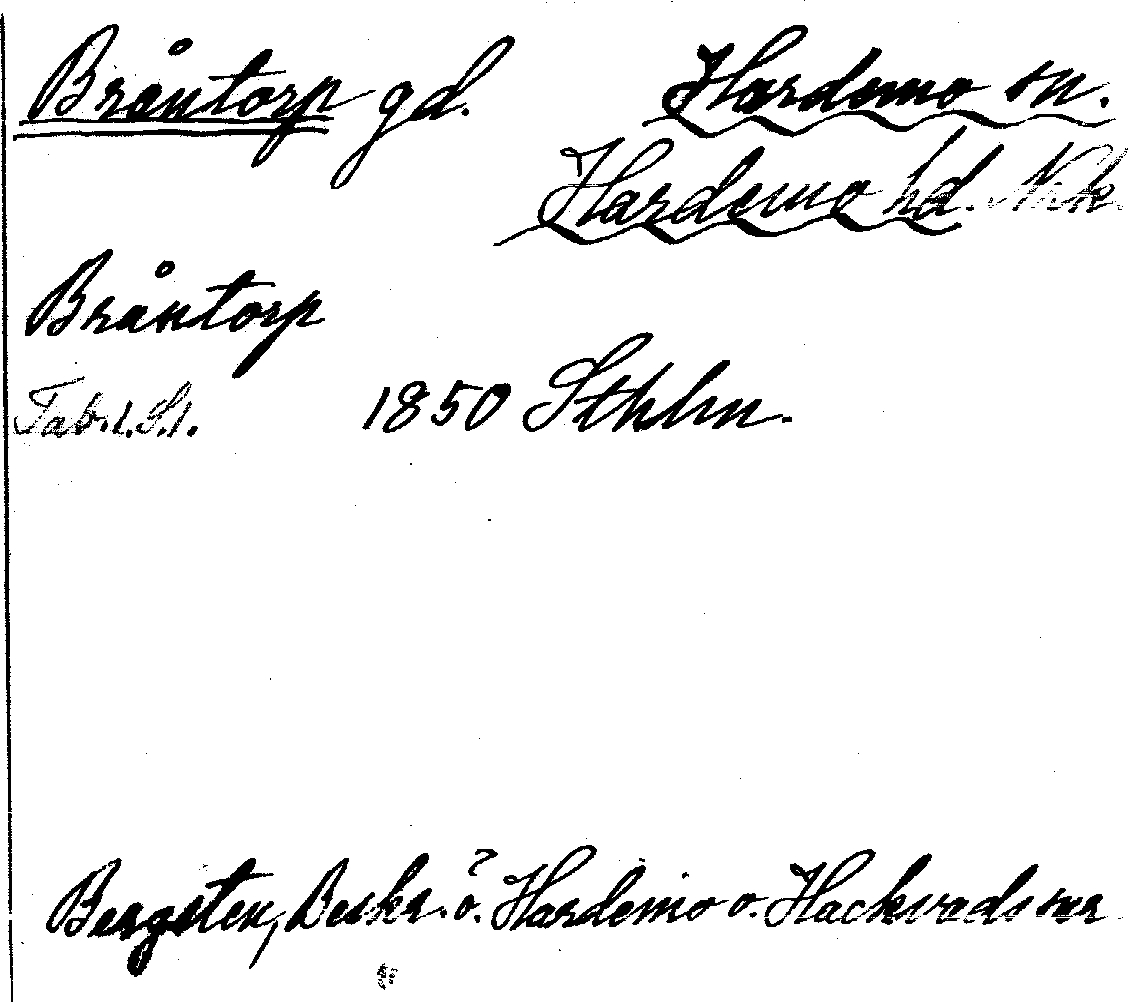 Bråntorp gd. Hardemo sn.
Hardemo hd. Nrke.
Bråntorp
Tab. l. S. 1. 1850 Sthlm.
Bergsten, Beskr. ö. Hardemo o. Hackvads snr